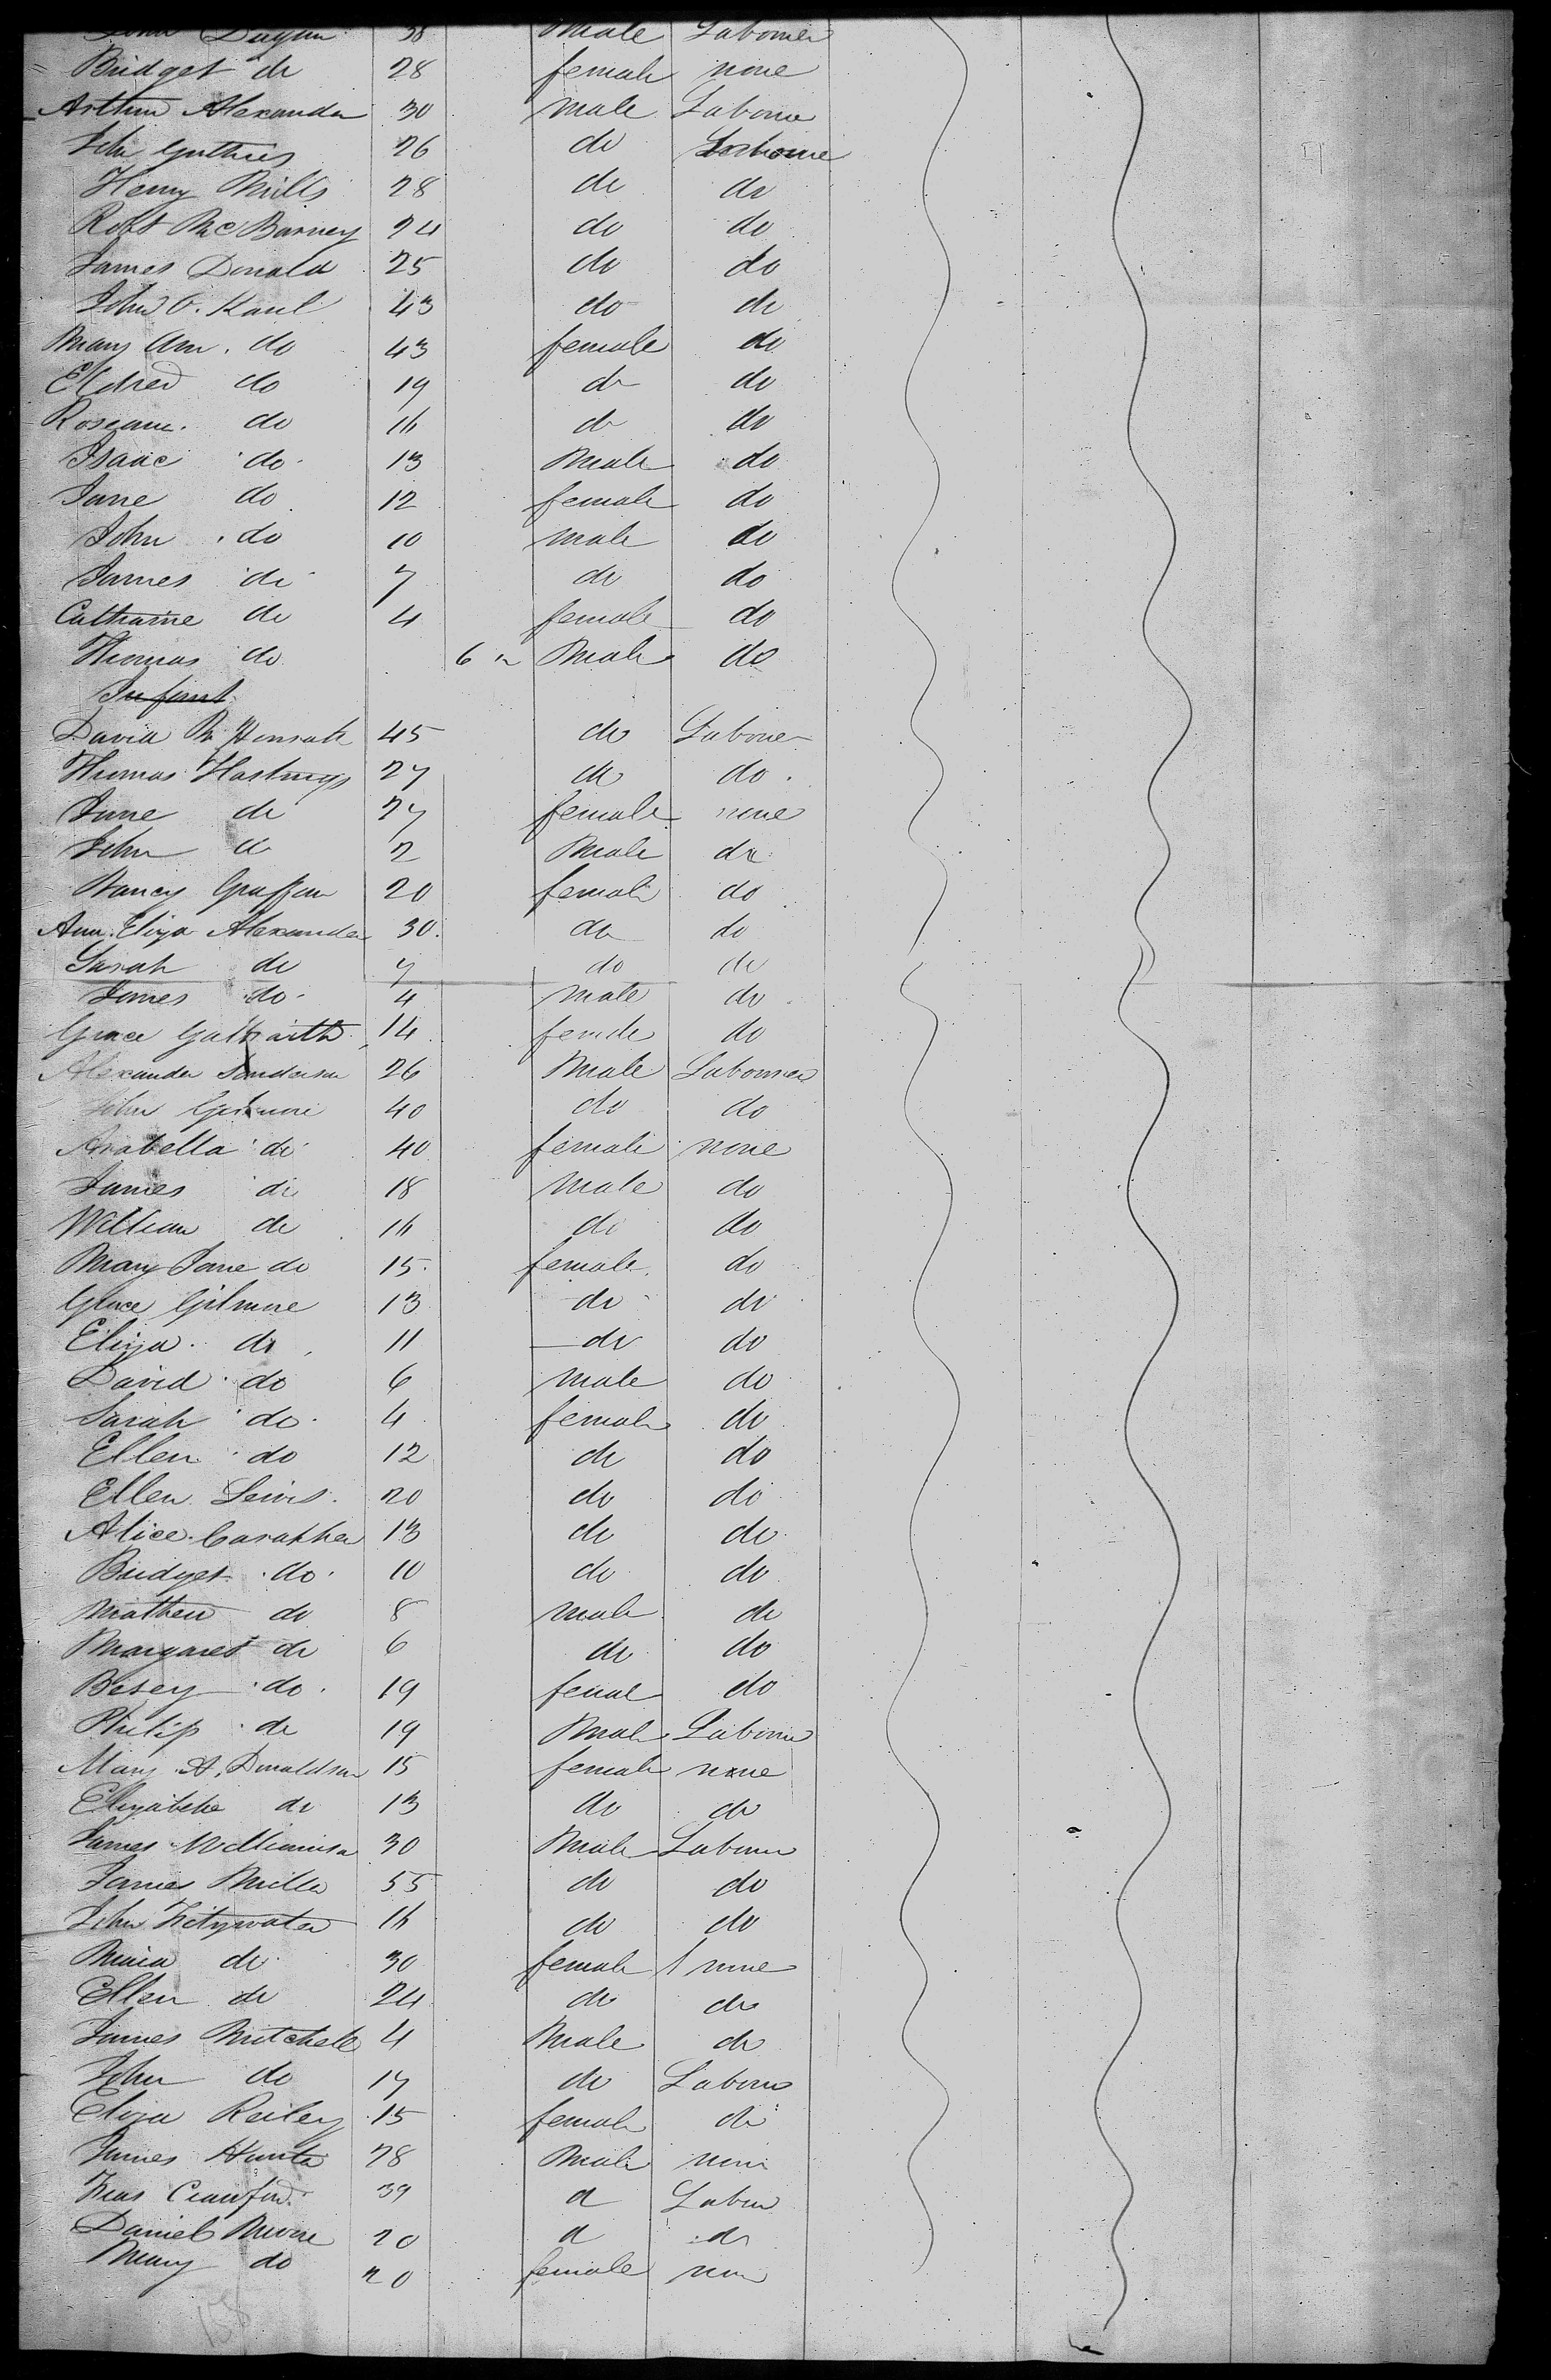 John Dugan 38 Male Labourer
Bridget do 28 female none
Arthur Alexander 30 male Labourer
John Guthries 26 do Labourer
Henry Mills 28 do do
Robt McBurney 24 do do
James Donald 25 do do
John O. Kane 43 do do
Mary Ann. do 43 female do
do 19 do do
Roseann. do 16 do do
Isaac do 13 Male do
Jane do 12 female do
John do 10 male do
James do 7 do do
Catharine do 4 female do
Thomas do 6 m Male do
Infant
David 45 do Labourer
Thomas Hastings 27 do do
Jane do 27 female none
John do 2 Male do
Nancy 20 female do
Ann Eliza Alexander 30. do do
Sarah do 7 do do
James do 4 male do
Grace Galbraith 14 female do
Alexander Sanderson 26 Male Labourer
John Gilmore 40 do do
Arabella do 40 female none
James do 18 Male do
William do 16 do do
Mary Jane do 15. female do
Grace Gilmore 13 do do
Eliza. do 11 do do
David do 6 male do
Sarah do 4 female do
Ellen do 12 do do
Ellen Lewis. 20 do do
Alice 13 do do
Bridget do 10 do do
Mathew do 8 male do
Margaret do 6 do do
Betsey do 19 femal do
Philip do 19 Male Labourer
Mary A. Donaldson 15 female none
Elizabeth do 13 do do
James Williamson 30 Male Labourer
James Miller 55 do do
John 16 do do
Maria do 30 female none
Ellen do 24 do do
James Mitchell 4 Male do
John do 17 do Labour
Eliza Reiley 15 female do
James Hunter 28 Male none
Crawford 39 d Labour
Daniel Moore 20 d do
Mary do 20 female non
158